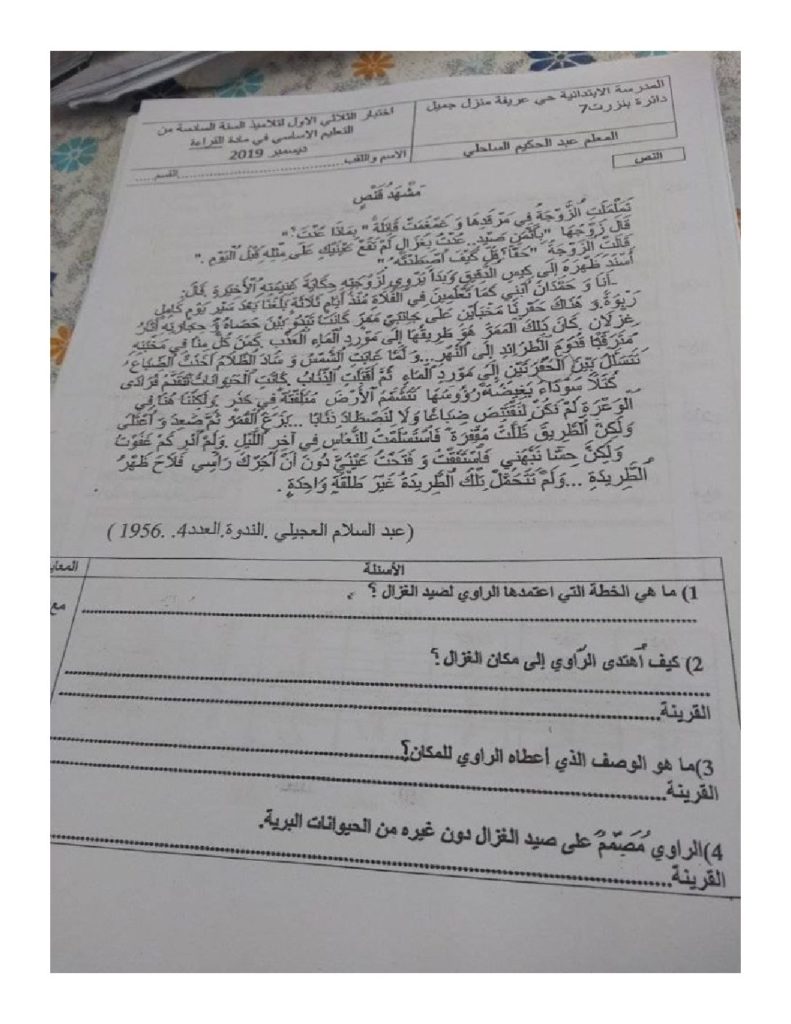 المدرسة الابتدائية حي عريفة منزل جميل
دائرة بنزرت7
المعلم عبد الحكيم الساحلي
اختبار الثلاثي الاول لتلاميذ السنة السادسة من
التعليم الاساسي في مادة القراءة
ديسمبر 2019
الاسم واللقب............................القسم.....
النص
مَشْهَدُ قَنْصٍ
تَمَلْمَلَتِ الزَّوْجَةُ فِي مَرْقَدِهَا وَ غَمْغَمَتْ قَائِلَةً " بِمَاذَا عُدْتَ ؟"
قَالَ زَوْجُهَا "بِأَثْمَنِ صَيْدٍ.. عُدْتُ بِغَزَالٍ لَمْ تَقَعْ عَيْنَيْكِ عَلَى مِثْلِهِ قَبْلَ الْيَوْمِ ."
قَالَتِ الزَّوْجَةُ "حَقًّا قُلْ كَيْفَ اصْطَدْتَهُ "
أَسْنَدَ ظَهْرَهُ إِلَى كِيسِ الدَّقِيقِ وَبَدَأَ يَرْوِي لِزَوْجَتِهِ حِكَايَةَ غَنِيمَتِهِ الْأَخِيرَةِ قَالَ:
-أَنَا وَ حَمْدَانُ كَمَا تَعْلَمِينَ فِي الْفَلَاةِ مُنْذُ أَيَّامٍ ثَلَاثَةٍ بَلَغْنَا بَعْدَ سَيْرِ يَوْمٍ كَامِلٍ
رَبْوَةً.وَ هُنَاكَ حَفَرْنَا مَخْبَأَيْنِ عَلَى جَانِبَيْ مَمَرٍّ كَانَتْ تَبْدُو بَيْنَ حَصَاهُ وَ حِجَارَتِهِ آثَارُ
غِزْلَانٍ .كَانَ ذَلِكَ الْمَمَرُّ هُوَ طَرِيقُهَا إِلَى مَوْرِدِ الْمَاءِ الْعَذْبِ .كَمَنَ كُلٌّ مِنَّا فِي مَخْبَئِهِ
مُتَرَقِّبًا قُدُومَ الطَّرَائِدِ إِلَى النَّهْرِ...وَ لَمَّا غَابَتِ الشَّمْسُ وَ سَادَ الظَّلَامُ أَخَذَتِ الضِّبَاعُ
تَتَسَلَّلُ بَيْنَ الْحُفْرَتَيْنِ إِلَى مَوْرِدِ الْمَاءِ ثُمَّ أَقْبَلَتِ الذِّئَابُ .كَانَتِ الْحَيَوَانَاتُ تَتَقَدَّمُ فُرَادَى
كُتَلًا سَوْدَاءَ بَغِيضَةً رُؤُوسُهَا تَتَشَمَّمُ الْأَرْضَ مُتَلَفِّتَةً فِي حَذَرٍ .وَلَكِنَّا هُنَا فِي
الْوَعْرَةِ لَمْ نَكُنْ لِنَقْتَنِصَ ضِبَاعًا وَلَا لِنَصْطَادَ ذِئَابًا ...بَزَغَ الْقَمَرُ ثُمَّ صَعِدَ وَ اعْتَلَى
وَلَكِنَّ الطَّرِيقَ ظَلَّتْ مُقْفِرَةً فَاسْتَسْلَمْتُ لِلنُّعَاسِ فِي آخِرِ اللَّيْلِ .وَلَمْ أَدْرِ كَمْ غَفَوْتُ
وَلَكِنَّ حِسًّا نَبَّهَنِي فَاسْتَفَقْتُ وَ فَتَحْتُ عَيْنَيَّ دُونَ أَنْ أُحَرِّكَ رَأْسِي فَلَاحَ ظَهْرُ
الطَّرِيدَةِ ...وَلَمْ تَتَحَمَّلْ تِلْكَ الطَّرِيدَةُ غَيْرَ طَلْقَةٍ وَاحِدَةٍ .
(عبد السلام العجيلي .الندوة.العدد4. .1956 )
الأسئلة
1) ما هي الخطة التي اعتمدها الراوي لصيد الغزال ؟
مع
2) كيف اُهتدى الرّاوي إلى مكان الغزال ؟
القرينة
3)ما هو الوصف الذي أعطاه الراوي للمكان؟
القرينة
4)الراوي مُصَمِّمٌ على صيد الغزال دون غيره من الحيوانات البرية.
القرينة